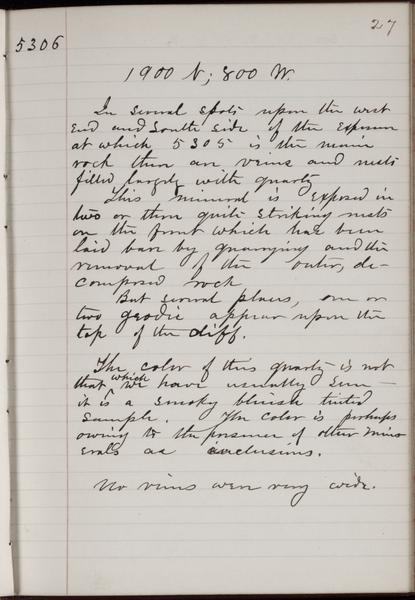 27
5306
1900 N; 800 W.
In several spots upon the west
end and south side of the exposure
at which 5305 is the main
rock there are veins and nests
filled largely with quartz
This mineral is exposed in
two or three quite striking nests
on the front which has been
laid bare by quarrying and the
removal of the outer, de-
composed rock
But several places, one or
two geodic appear upon the
top of the cliff.
The color of this quartz is not
that which we have usually seen —
it is a smoky bluish tinted
sample. The color is perhaps
owing to the presence of other min-
erals as inclusions.
No veins were very wide.